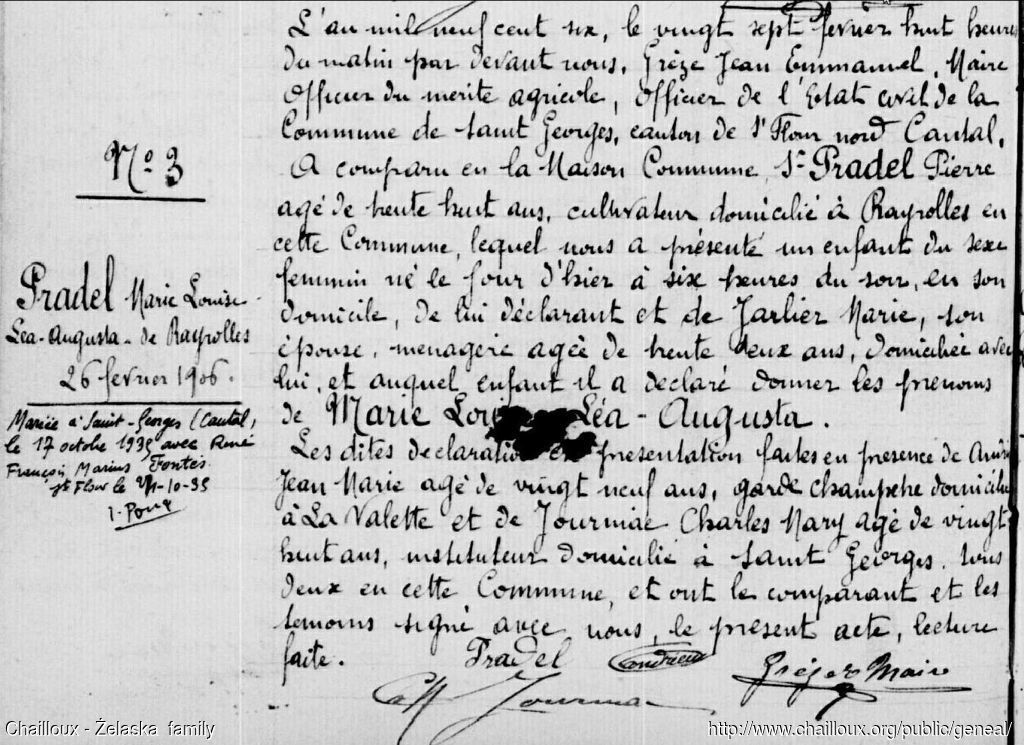 L'an mil neuf cent six, le vingt sept fevrier huit heures
du matin par devant nous, Grèze Jean Emmanuel, Maire
Officier du merite agricole, Officier de l'Etat civil de la
Commune de Saint Georges, canton de St Flour nord Cantal,
A comparu en la Maison Commune, Sr Pradel Pierre
agé de trente huit ans, cultivateur domicilié à Rayrolles en
cette Commune, lequel nous a présenté un enfant du sexe
feminin né le jour d'hier à six heures du soir, en son
domicile, de lui déclarant et de Jarlier Marie, son
épouse, menagère agée de trente deux ans, domiciliée avec
lui, et auquel enfant il a declaré donner les prenoms
de Marie Louise Léa-Augusta.
Les dites declaration et presentation faites en presence de
Jean Marie agé de vingt neuf ans, garde champetre domicilié
à La Valette et de Journiac Charles Mary agé de vingt
huit ans, instituteur domicilié à Saint Georges. tous
deux en cette Commune, et ont le comparant et les
temoins signé avec nous, le present acte, lecture
faite.
Pradel
Grèze Maire
No 3
Pradel Marie Louise
Léa-Augusta-de Rayrolles
26 fevrier 1906.
Mariée à Saint-Georges (Cantal)
le 17 octobre 1935 avec René
François Marius Fontès.
St Flour le 21-10-35
Chailloux - Żelaska family
http://www.chailloux.org/public/geneal/